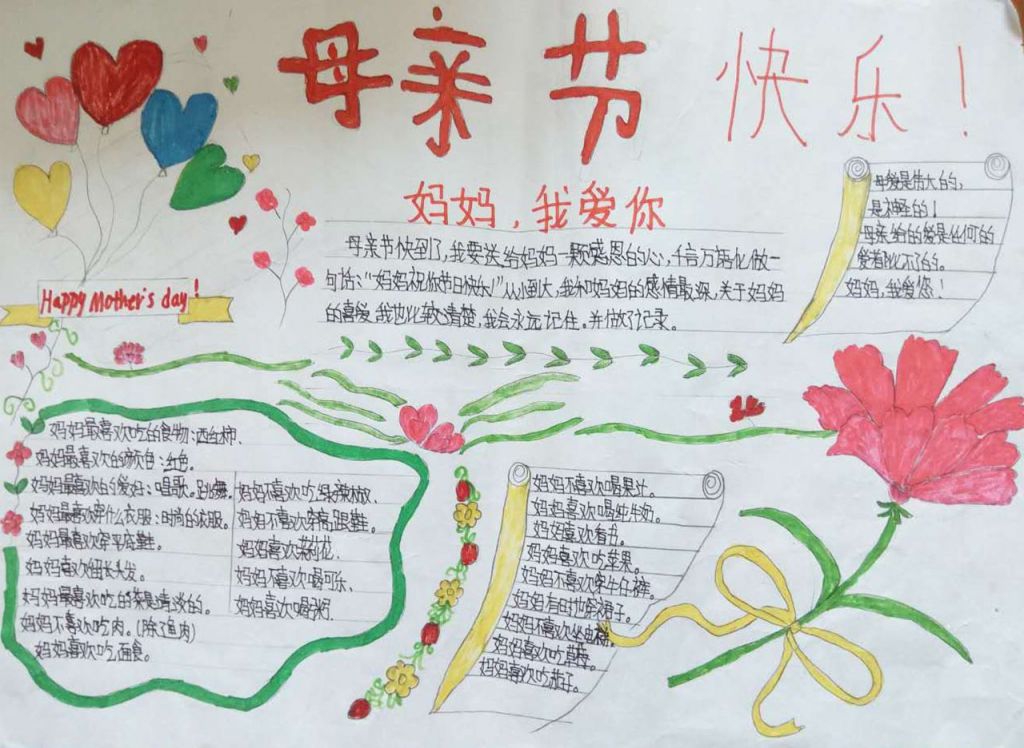 母亲节 快乐！
Happy Mother's day!
妈妈，我爱你
母亲节快到了,我要送给妈妈一颗感恩的心,千言万语化做一
句话:“妈妈祝你节日快乐!”从小到大,我和妈妈的感情最深,关于妈妈
的喜爱,我也比较清楚,我会永远记住。并做了记录。
母爱是伟大的,
是神圣的!
母亲给的爱是任何的
爱都比不了的。
妈妈,我爱您!
妈妈最喜欢吃的食物:西红柿、
妈妈最喜欢的颜色:红色。
妈妈最喜欢的爱好:唱歌。跳舞。
妈妈最喜欢穿什么衣服:时尚的衣服。
妈妈最喜欢穿平底鞋。
妈妈喜欢细长头发。
妈妈最喜欢吃的菜是清淡的。
妈妈不喜欢吃肉。(除了鱼肉)
妈妈喜欢吃面食。
妈妈不喜欢吃绿辣椒.
妈妈不喜欢穿高跟鞋。
妈妈喜欢茉莉花.
妈妈不喜欢喝可乐、
妈妈喜欢喝粥.
妈妈不喜欢喝果汁。
妈妈喜欢喝纯牛奶。
妈妈喜欢看书。
妈妈喜欢吃苹果。
妈妈不喜欢穿牛仔裤。
妈妈有时也会穿裙子。
妈妈不喜欢坐电梯。
妈妈喜欢吃草莓。
妈妈喜欢吃茄子。